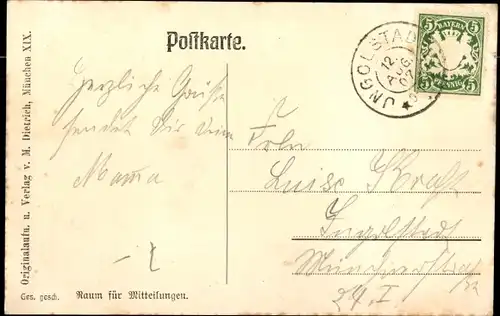 Postkarte.
INGOLSTADT
12
AUG
07
5 BAYERN 5
5 PFENNIG 5
Herzliche Grüße
sendet Dir Deine
Mama
Frln
Luise Kraft
Ingolstadt
24. I
Originalaufn. u. Verlag v. M. Dietrich, München XIX.
Ges. gesch.
Raum für Mitteilungen.